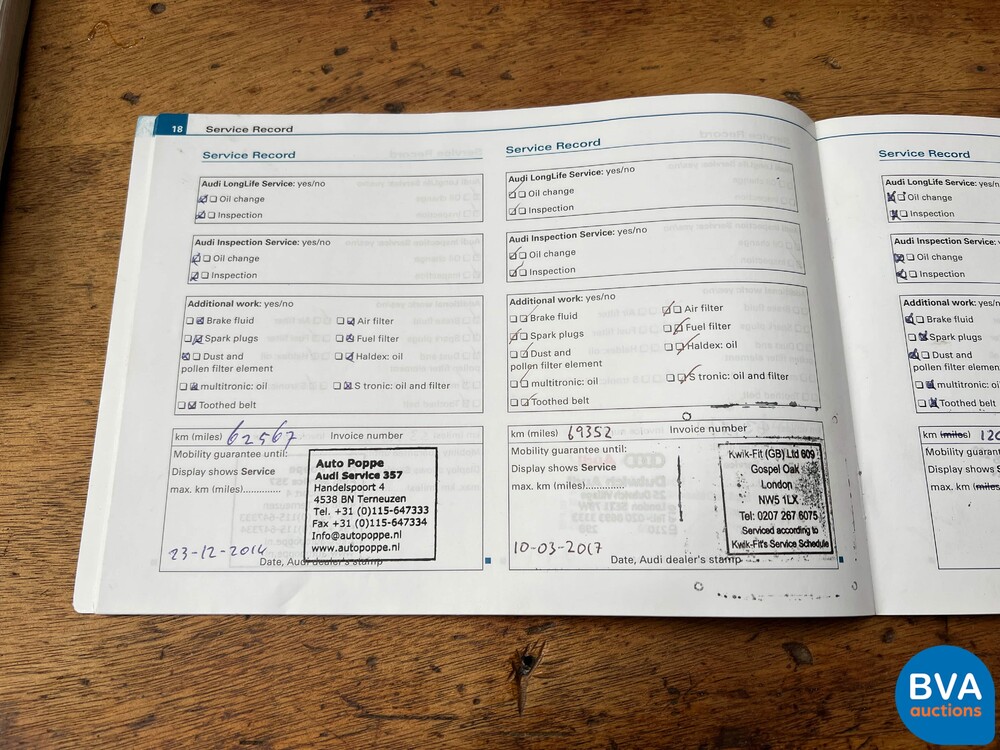 18 Service Record
Service Record
Audi LongLife Service: yes/no
Oil change
Inspection
Audi Inspection Service: yes/no
Oil change
Inspection
Additional work: yes/no
Brake fluid Air filter
Spark plugs Fuel filter
Dust and Haldex: oil
pollen filter element
multitronic: oil S tronic: oil and filter
Toothed belt
km (miles) 62567 Invoice number
Mobility guarantee until:
Display shows Service
max. km (miles).............
Auto Poppe
Audi Service 357
Handelspoort 4
4538 BN Terneuzen
Tel. +31 (0)115-647333
Fax +31 (0)115-647334
Info@autopoppe.nl
www.autopoppe.nl
23-12-2014
Date, Audi dealer's stamp
Service Record
Audi LongLife Service: yes/no
Oil change
Inspection
Audi Inspection Service: yes/no
Oil change
Inspection
Additional work: yes/no
Brake fluid Air filter
Spark plugs Fuel filter
Dust and Haldex: oil
pollen filter element
multitronic: oil S tronic: oil and filter
Toothed belt
km (miles) 69352 Invoice number
Mobility guarantee until:
Display shows Service
max. km (miles).............
Kwik-Fit (GB) Ltd 609
Gospel Oak
London
NW5 1LX
Tel: 0207 267 6075
Serviced according to
Kwik-Fit's Service Schedule
10-03-2017
Date, Audi dealer's stamp
Service Record
Audi LongLife Service: yes/n
Oil change
Inspection
Audi Inspection Service:
Oil change
Inspection
Additional work: yes/no
Brake fluid
Spark plugs
Dust and
pollen filter element
multitronic: oil
Toothed belt
km (miles) 120
Mobility guarant
Display shows S
max. km (miles
BVA
auctions